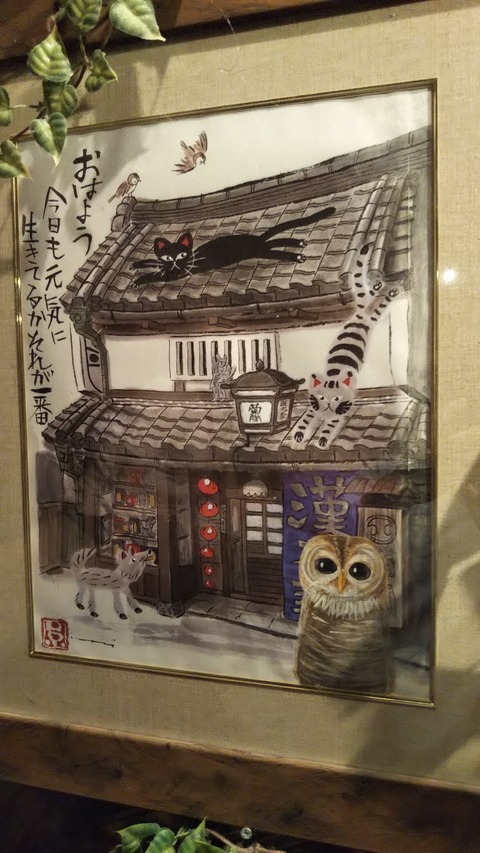 おはよう
今日も元気に
生きてるかなれが一番
蘭
漢